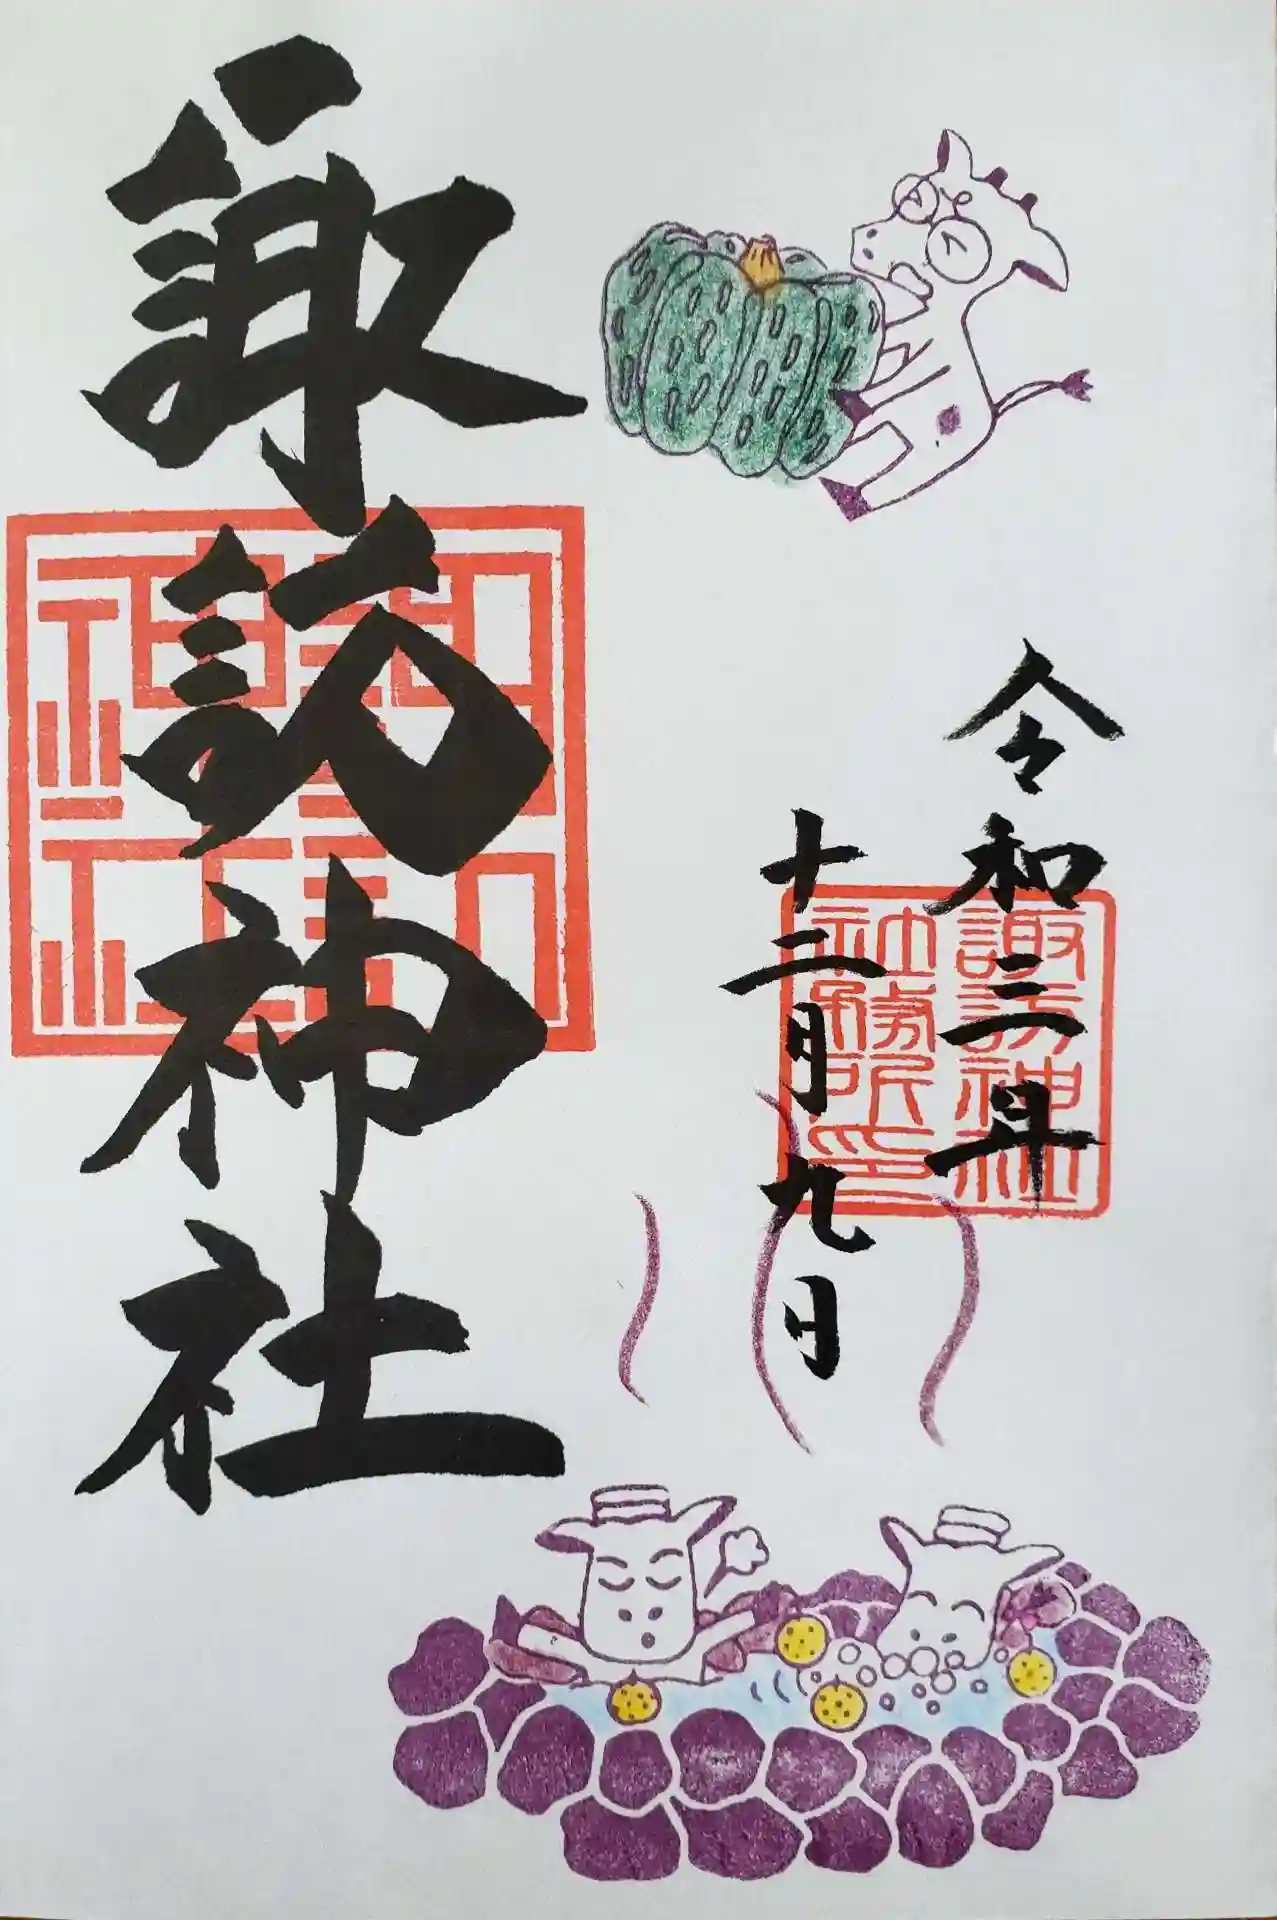 令和二年
十二月九日
諏訪神社
諏訪神社
社務所印
諏訪
神社